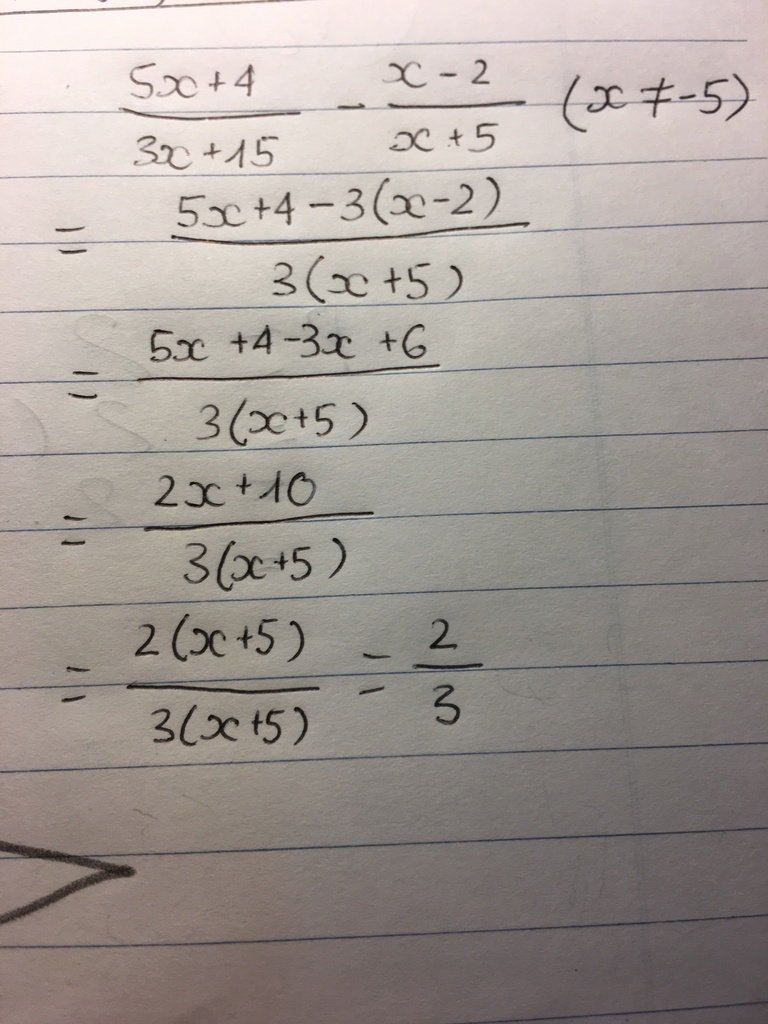 5x+4/3x+15 - x-2/x+5 (x ≠ -5)
= 5x+4-3(x-2)/3(x+5)
= 5x+4-3x+6/3(x+5)
= 2x+10/3(x+5)
= 2(x+5)/3(x+5) = 2/3